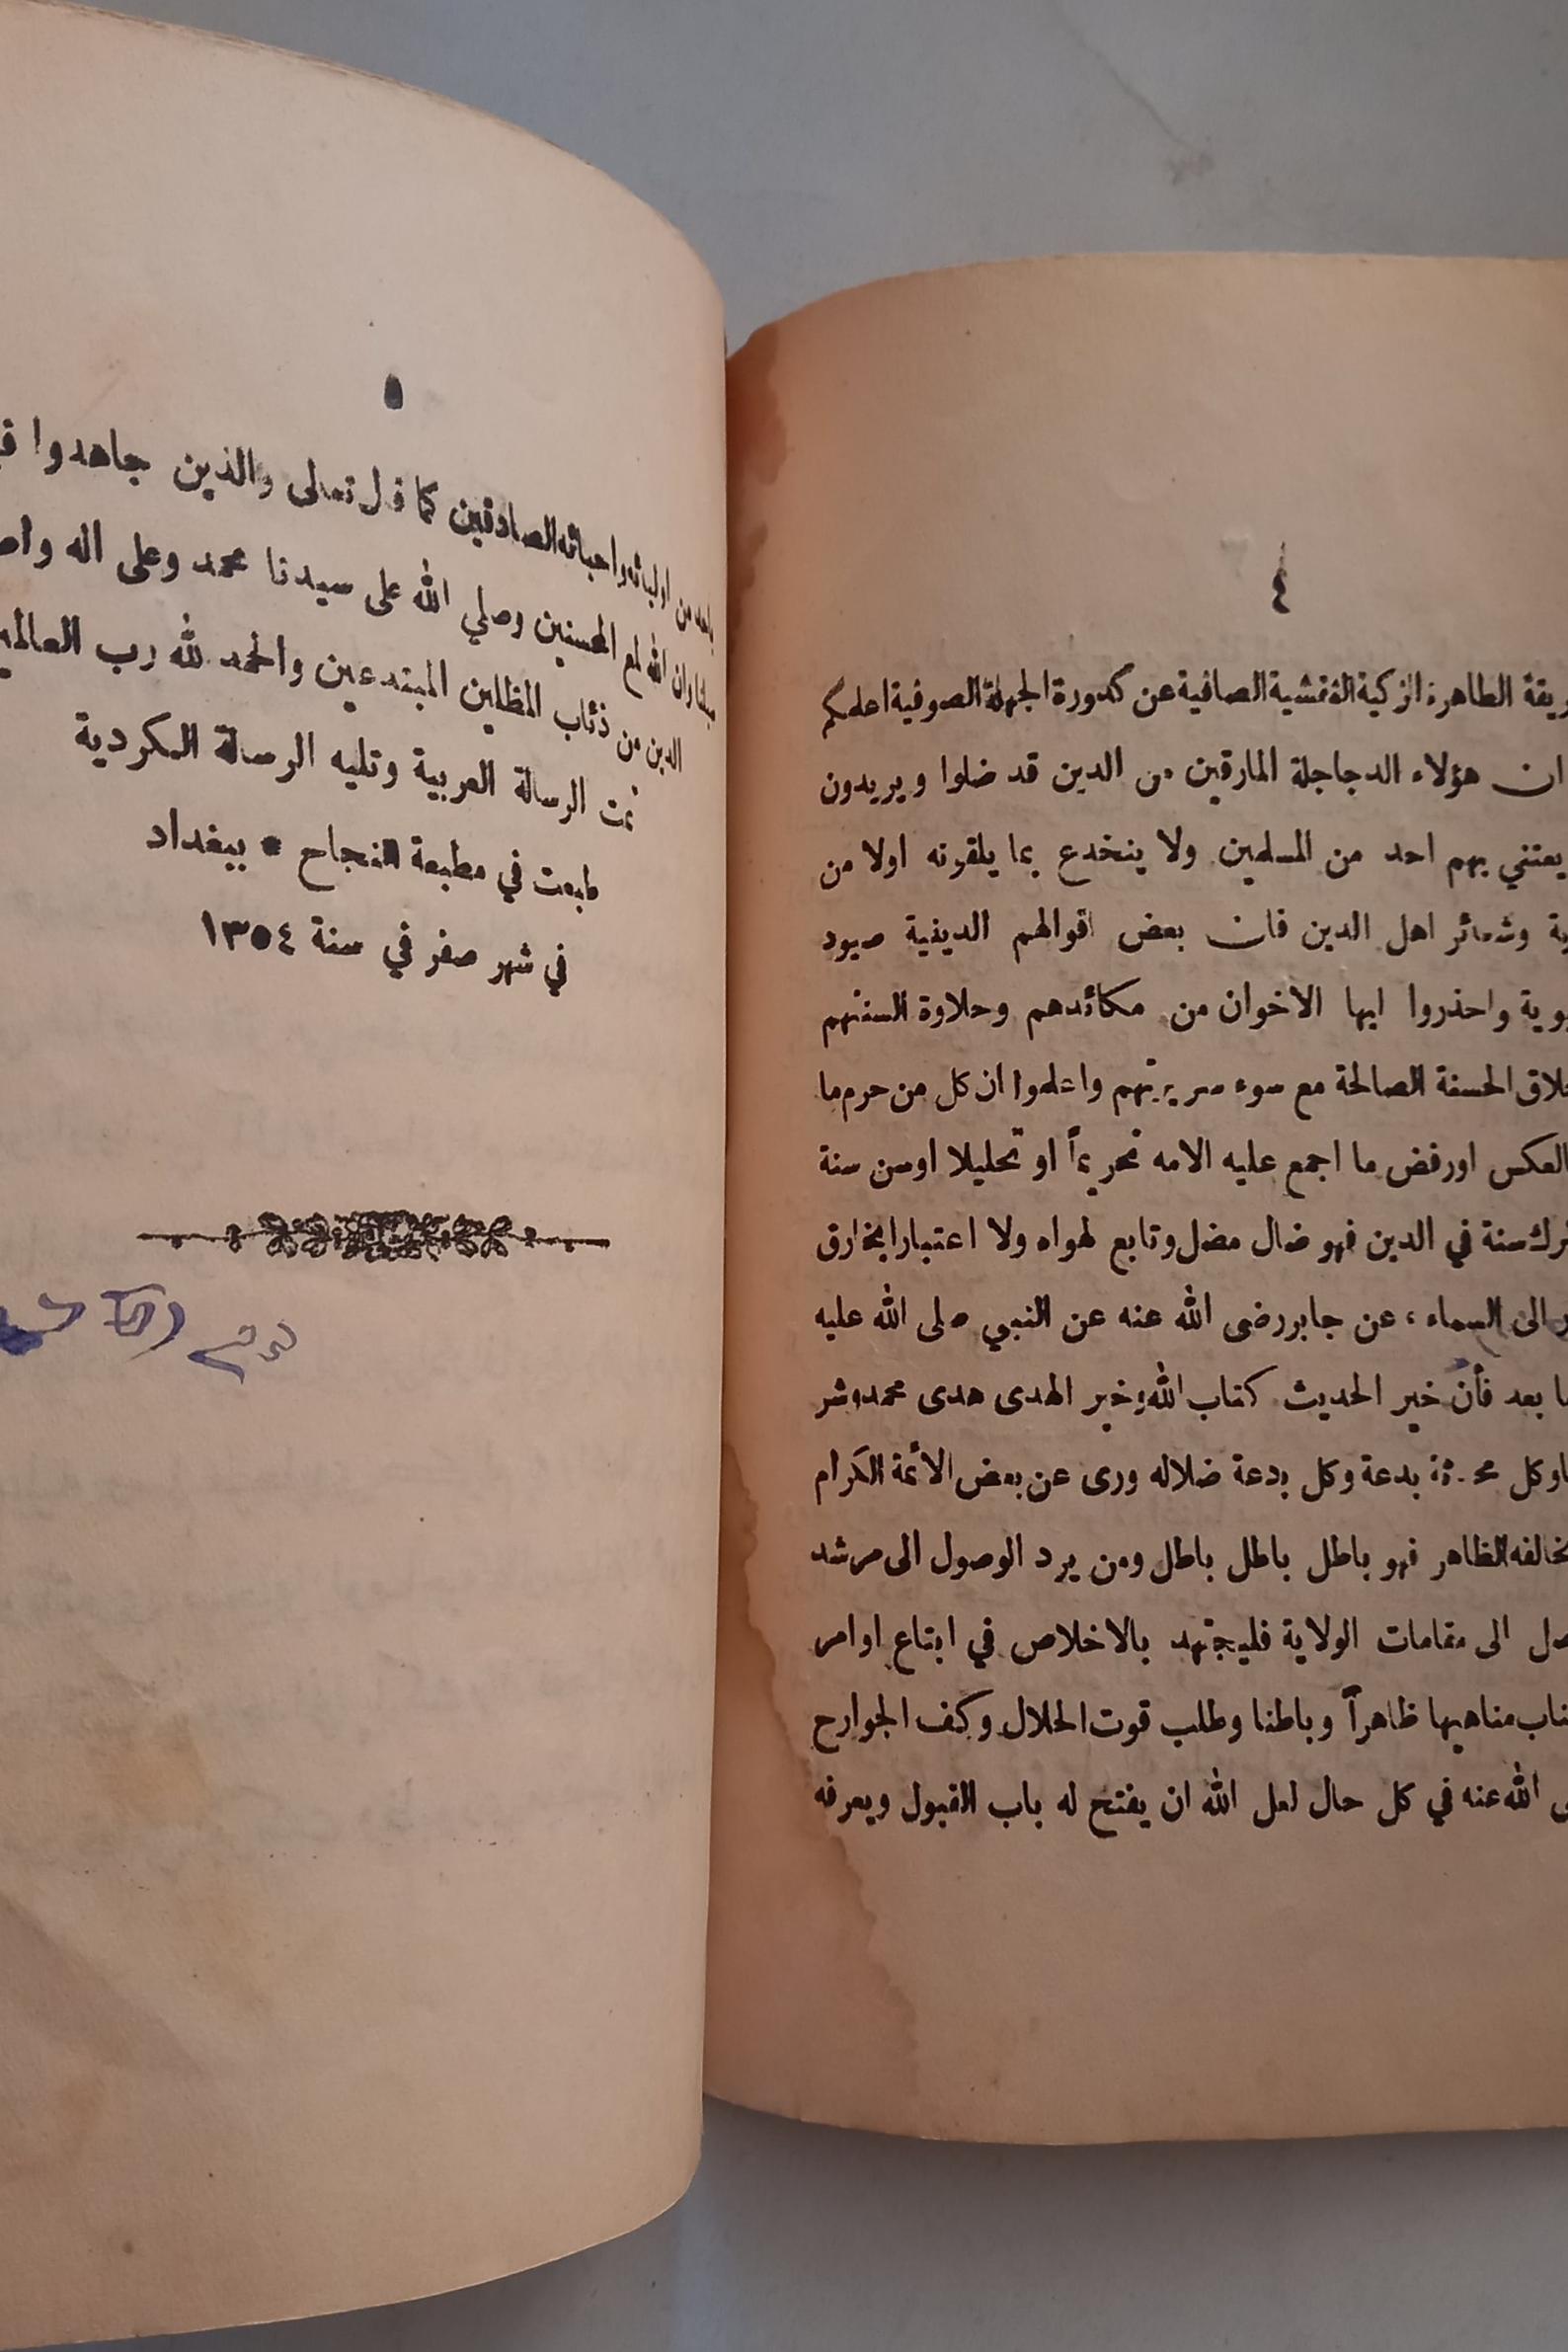 ٤
الطاهرة الزكية النقشية الصافية عن كدورة الجهلة الصوفية اعلمكم
ان هؤلاء الدجاجلة المارقين من الدين قد ضلوا ويريدون
يعتني بهم احد من المسلمين ولا ينخدع بما يلقونه اولا من
وشعائر اهل الدين فان بعض اقوالهم الدينية صيود
واحذروا ايها الاخوان من مكائدهم وحلاوة السنتهم
الحسنة الصالحة مع سوء سريرتهم واعلموا ان كل من حرم ما
العكس اورفض ما اجمع عليه الامه تحريماً او تحليلا اوسن سنة
سنة في الدين فهو ضال مضل وتابع لهواه ولا اعتبارا بخارق
الى السماء ، عن جابر رضى الله عنه عن النبي صلى الله عليه
بعد فأن خير الحديث كتاب الله وخير الهدى هدى محمد وشر
وكل محدثة بدعة وكل بدعة ضلاله ورى عن بعض الأئمة الكرام
الظاهر فهو باطل باطل باطل ومن يرد الوصول الى مرشد
الى مقامات الولاية فليجتهد بالاخلاص في ابتاع اوامر
مناهيها ظاهراً وباطنا وطلب قوت الحلال وكف الجوارح
الله عنه في كل حال لعل الله ان يفتح له باب القبول ويعرفه
٥
من اوليائه واحبائه الصادقين كما قال تعالى والذين جاهدوا
وان الله لمع المحسنين وصلي الله على سيدنا محمد وعلى اله
الدين من ذئاب المظلين المبتدعين والحمد لله رب
تمت الرسالة العربية وتليه الرسالة الكردية
طبعت في مطبعة النجاح • ببغداد
في شهر صفر في سنة ١٣٥٤